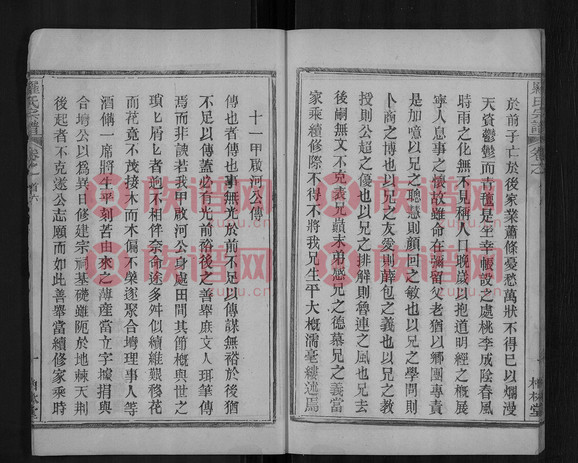 於前子亡於後家業蕭條憂愁萬狀不得已以爛漫
天資鬱鬱而育種是生幸輒設之處桃李成陰春風
時雨之化無不見稱人口晚歲以抱道明經之概展
寧人息事之懷故雖命在彌留父老猶以鄉團專責
是加噫以兄之聰慧則顏回之敏也以兄之學問則
卜商之博也以兄之友愛則薛包之義也以兄之教
授則公超之優也以兄之排解則魯連之風也兄去
後嗣無文不克表兄顛末弟感兄之德慕兄之義當
家乘續修際不得不將我兄生平大概濡毫縷述焉
十一甲啟河公傳
傳也者傳也事無光於前不足以傳謀無裕於後猶
不足以傳蓋必有光前裕後之善舉庶文人珥筆傳
焉而非諛若我甲啟河公身處田間其節概與世之
瑣七屑七者迥不相伴奈命途多舛似續維艱移花
而花竟不茂接木而木傷不榮遂聚合塆理事人等
酒備一席將生平刻苦由來之薄產當立字據捐與
合塆公以為異日修建宗祠基礎雖阨於地棘天荆
後起者不克遂公志願而如此善舉當續修家乘時
羅氏宗譜
卷之
首六
羅氏宗譜
卷之
族譜网
zupu.cn